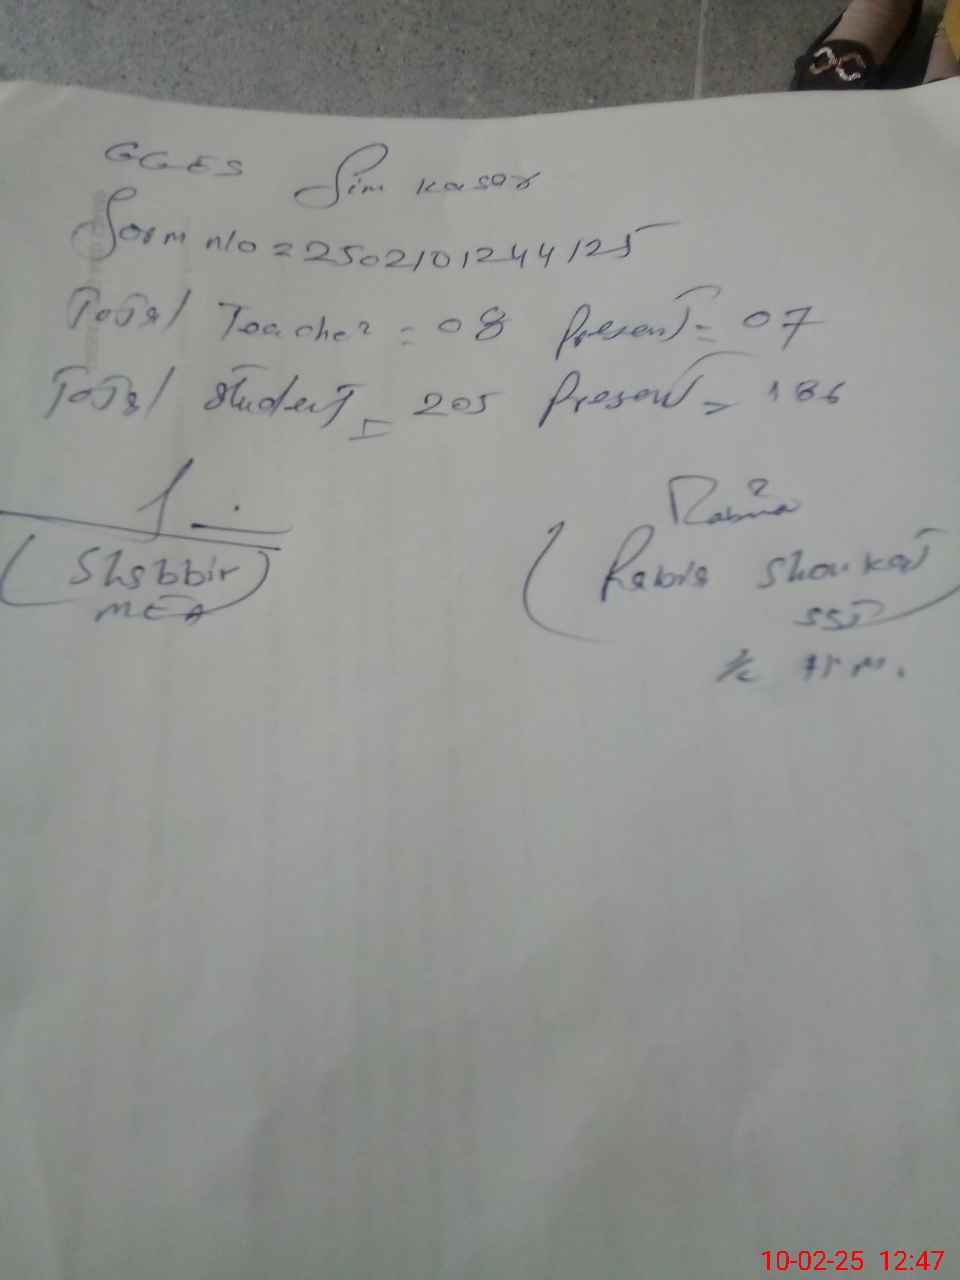 GGES Sim Kasar
Form n/o = 2502101244125
Total Teacher = 08 Present = 07
Total Student = 205 Present = 186
(Shabbir)
MEA
(Rabia Shoukat
SST
10-02-25 12:47